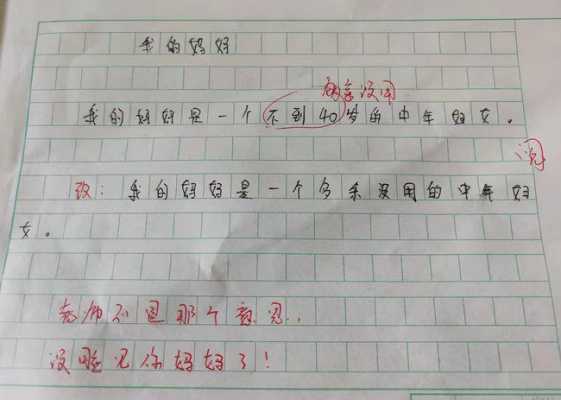 我的妈妈
多余没用
我的妈妈是一个不到40岁的中年妇女。
阅
改：我的妈妈是一个多余没用的中年妇
女。
老师不是那个意思..
没脸见你妈妈了！